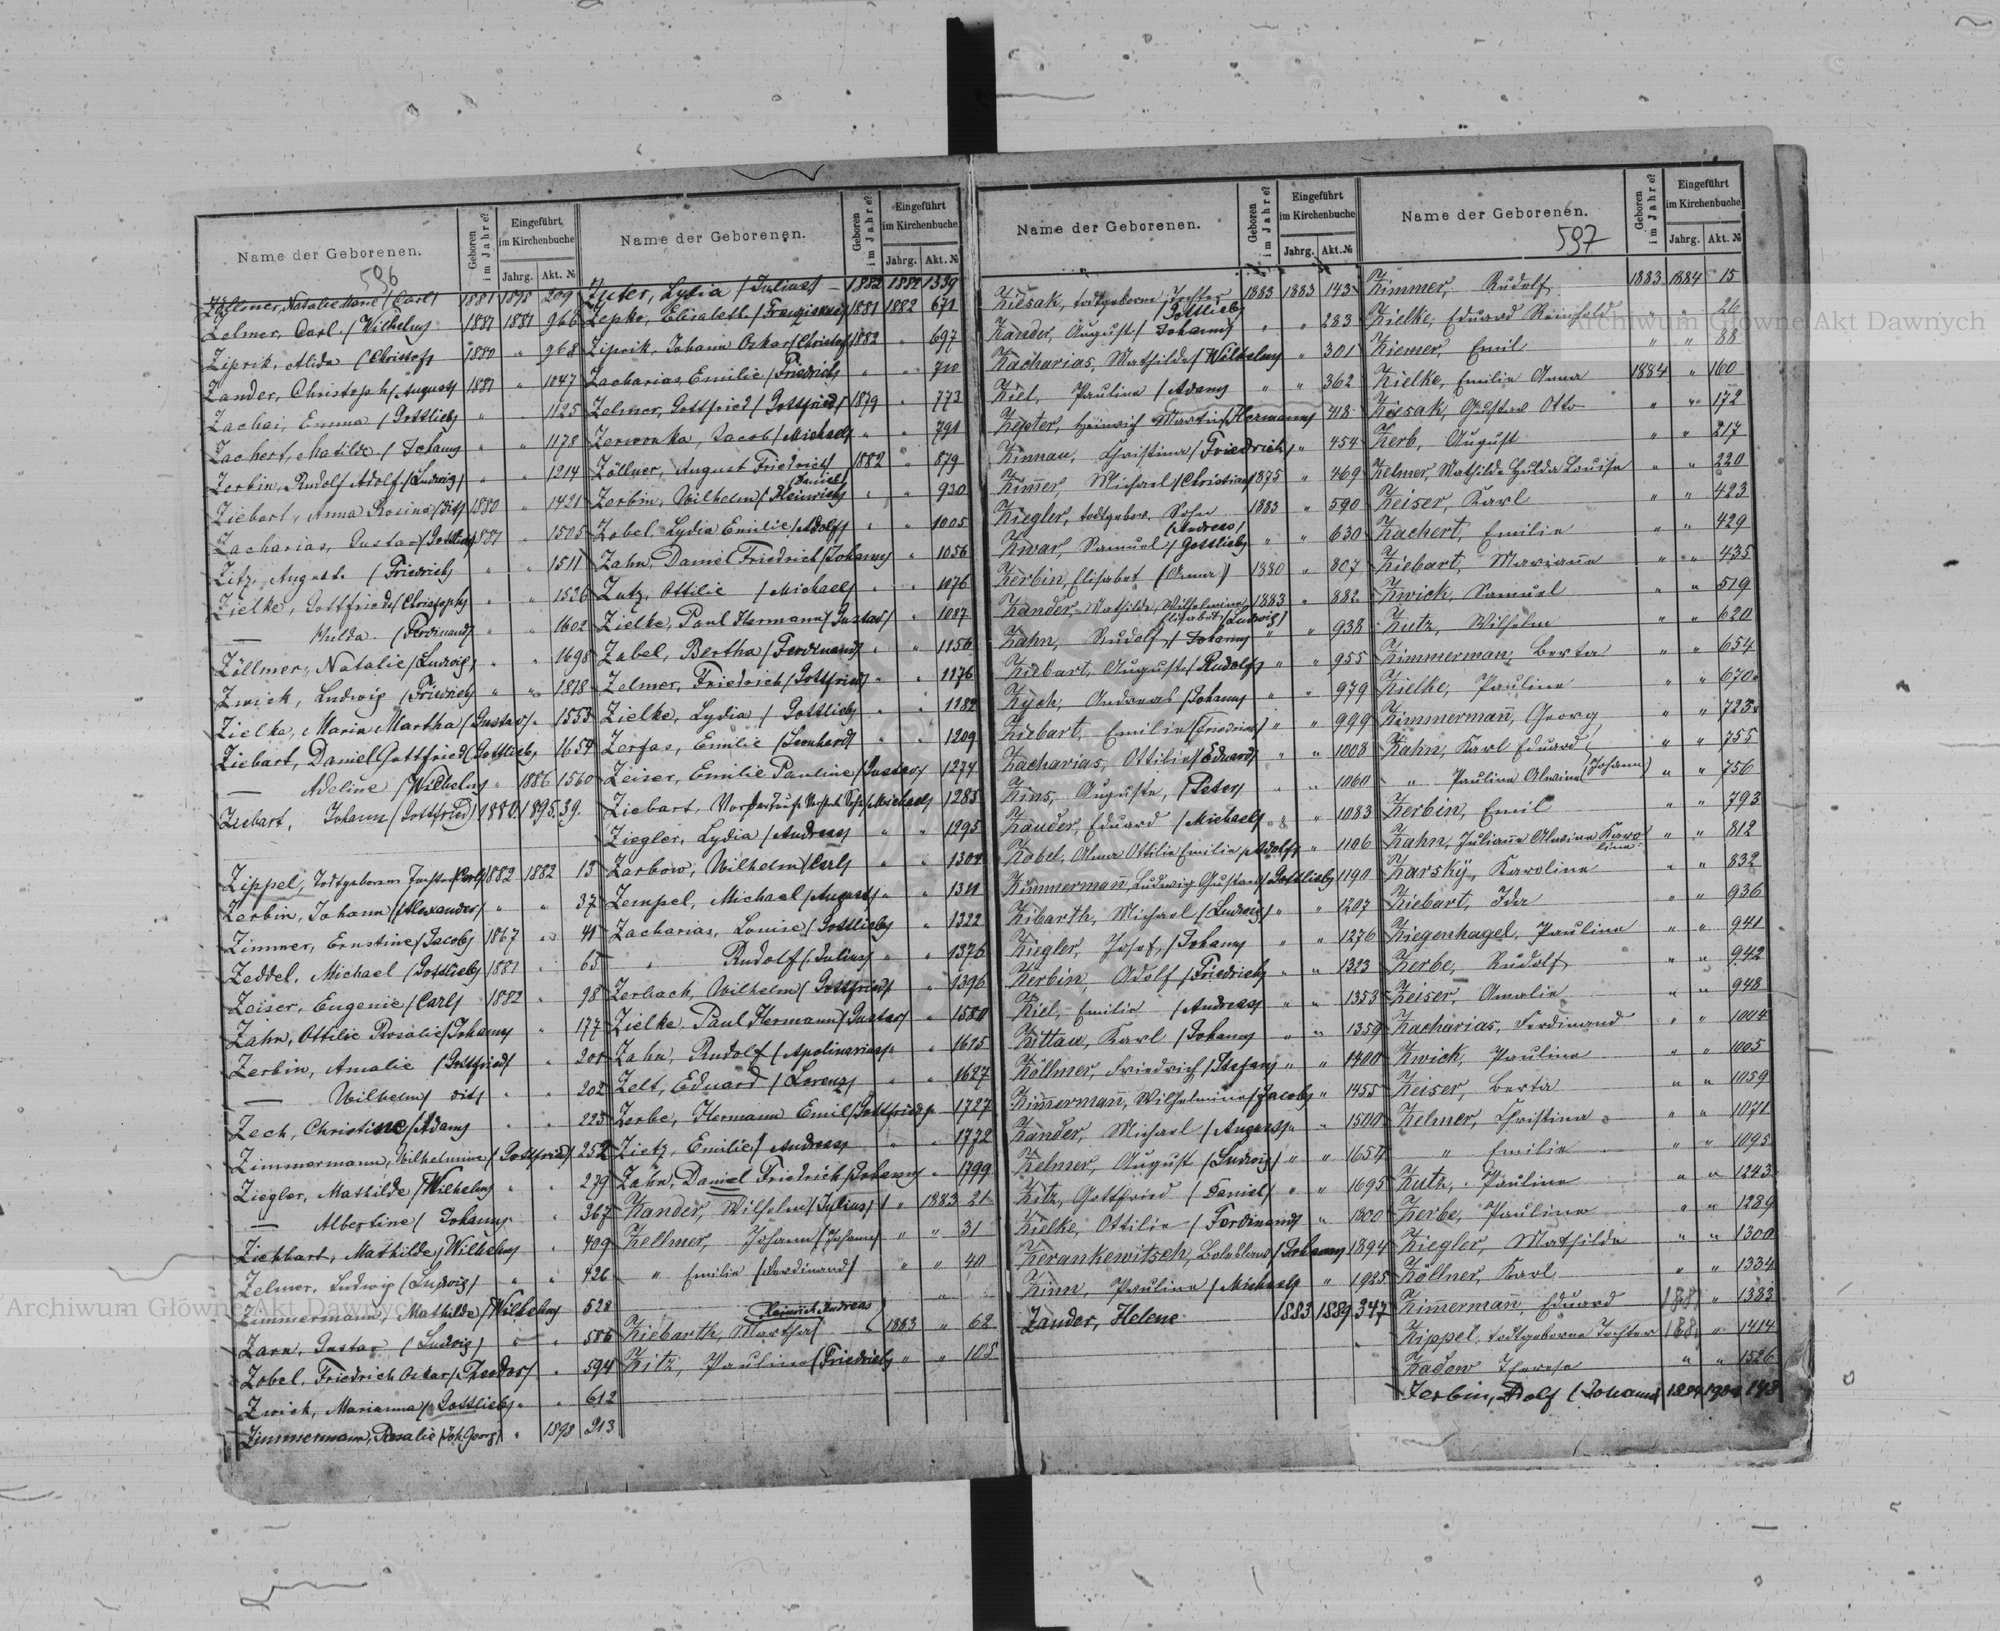 Name der Geborenen.
596
Geboren im Jahre?
Eingeführt im Kirchenbuche
Jahrg. Akt. №
Zellmer, Natalie Marie (Carl) 1881 1895 209
Zelmer, Carl (Wilhelm) 1881 1881 966
Ziprik, Alida (Christof) 1880 " 968
Zander, Christoph (August) 1881 " 1047
Zachai, Emma (Gottlieb) " " 1125
Zachert, Matilde (Johann) " " 1178
Zerbin, Rudolf Adolf (Ludwig) " " 1214
Ziebart, Anna Rosine (dit) 1880 " 1421
Zacharias, Gustav (Gottlieb) 1881 " 1505
Zitz, August (Friedrich) " " 1511
Zielke, Gottfried (Christoph) " " 1526
— Hulda (Ferdinand) " " 1602
Zöllmer, Natalie (Ludwig) " " 1698
Zwick, Ludwig (Friedrich) " " 1818
Zielke, Maria Martha (Gustav) " 1553
Ziebart, Daniel Gottfried (Gottlieb) 1654
— Adeline (Wilhelm) " 1886 1560
Ziebart, Johann (Gottfried) 1880. 1895. 39.
Zippel, Todtgeborene Tochter (Carl) 1882 1882 13
Zerbin, Johann (Alexander) " " 37
Zimmer, Ernstine (Jacob) 1867 " 41
Zeddel, Michael (Gottlieb) 1881 " 65
Zeiser, Eugenie (Carl) 1882 " 98
Zahn, Ottilie Rosalie (Johann) " 177
Zerbin, Amalie (Gottfried) " 201
— Wilhelm (dit) " " 202
Zech, Christine (Adam) " " 223
Zimmermann, Wilhelmine (Gottfried) 252
Ziegler, Mathilde (Wilhelm) " " 279
— Albertine (Johann) " 367
Ziehbart, Mathilde (Wilhelm) " 409
Zelmer, Ludwig (Ludwig) " " 426
Zimmermann, Mathilde (Wilhelm) 528
Zarn, Gustav (Ludwig) " " 556
Zobel, Friedrich Oskar (Theodor) " 594
Zwick, Marianna (Gottlieb) " " 612
Zimmermann, Rosalie (Joh. Georg) " 1898 213
Name der Geborenen.
Geboren im Jahre?
Eingeführt im Kirchenbuche
Jahrg. Akt. №
Lydia (Julius) — 1882 1882 1339
Zepke, Elisabeth 1881 1882 671
Ziprik, Johann Oskar (Christof) 1882 " 697
Zacharias, Emilie (Friedrich) " " 710
Zelmer, Gottfried (Gottfried) 1879 " 773
Zerwonka, Jacob (Michael) " " 791
Zöllner, August Friedrich 1882 " 879
Zerbin, Wilhelm (Heinrich Daniel) " " 920
Zobel, Lydia Emilie (Adolf) " " 1005
Zahn, Daniel Friedrich (Johann) " 1056
Zutz, Ottilie (Michael) " " 1076
Zielke, Paul Hermann (Gustav) " 1087
Zabel, Bertha (Ferdinand) " " 1156
Zelmer, Friedrich (Gottfried) " " 1176
Zielke, Lydia (Gottlieb) " " 1182
Zerfas, Emilie (Leonhard) " " 1209
Zeiser, Emilie Pauline (Gustav) 1274
Ziebart, (Michael) 1285
Ziegler, Lydia (Andreas) " " 1295
Zarbow, Wilhelm (Carl) " " 1302
Zempel, Michael (August) " " 1311
Zacharias, Louise (Gottlieb) " 1322
" Rudolf (Julius) " " 1376
Zerbach, Wilhelm (Gottfried) " 1396
Zielke, Paul Hermann (Gustav) " 1580
Zahn, Rudolf (Apolinarius) " " 1615
Zelt, Eduard (Lorenz) " " 1627
Zerbe, Hermann Emil (Gottfried) " 1727
Zietz, Emilie (Andreas) " " 1772
Zahn, Daniel Friedrich (Johann) " 1799
Zander, Wilhelm (Julius) " 1883 21
Zellmer, Johann (Johann) " " 31
" Emilie (Ferdinand) " " 40
Heinrich Andreas
Ziebarth, Martha 1883 " 62
Zitz, Pauline (Friedrich) " " 105
Name der Geborenen.
Geboren im Jahre?
Eingeführt im Kirchenbuche
Jahrg. Akt. №
Ziesak, todtgeborene Tochter (Gottlieb) 1883 1883 143
Zander, August (Johann) " " 283
Zacharias, Mathilde (Wilhelm) " 301
Ziel, Pauline (Adam) " " 362
Zepter, Heinrich Martin (Hermann) 418
Zinnau, Christina (Friedrich) " 454
Zimmer, Michael (Christian) 1875 " 469
Ziegler, todtgebor. Sohn (Andreas) 1883 " 590
Zwar, Samuel (Gottlieb) " " 630
Zerbin, Elisabet (Anna) 1880 " 807
Zander, Mathilde Wilhelmine Elisabet (Ludwig) 1883 " 882
Zahn, Rudolf (Johann) " " 938
Ziebart, August (Rudolf) " " 955
Zych, Andreas (Johann) " " 979
Ziebart, Emilie (Friedrich) " " 999
Zacharias, Ottilie (Eduard) " " 1008
Zins, Auguste, (Peter) " " 1060
Zander, Eduard (Michael) " " 1083
Zobel, Alma Ottilie Emilie (Adolf) " 1106
Zimmermann, Ludwig Gustav (Gottlieb) 1190
Zibarth, Michael (Ludwig) " " 1207
Ziegler, Josef, (Johann) " " 1276
Zerbin, Adolf (Friedrich) " " 1323
Ziel, Emilie (Andreas) " " 1353
Zittau, Karl (Johann) " " 1359
Zöllmer, Friedrich (Stefan) " " 1400
Zimmermann, Wilhelmine (Jacob) " 1455
Zander, Michael (August) " " 1500
Zelmer, August (Ludwig) " " 1654
Zitz, Gottfried (Daniel) " " 1695
Zielke, Ottilie (Ferdinand) " 1800
Zerankewitsch, (Johann) 1894
Zinn, Pauline (Michael) " 1925
Zander, Helene 1883 1889 347
Name der Geborenen.
597
Geboren im Jahre?
Eingeführt im Kirchenbuche
Jahrg. Akt. №
Zimmer, Rudolf 1883 1884 15
Zielke, Eduard Reinhold " " 26
Ziemer, Emil " " 88
Zielke, Emilie Anna 1884 " 160
Ziesak, Gustav Otto " " 172
Zerb, August " " 217
Zelmer, Mathilde Hulda Louise " " 220
Zeiser, Karl " " 423
Zachert, Emilie " " 429
Ziebart, Marianne " " 435
Zwick, Samuel " " 519
Zutz, Wilhelm " " 620
Zimmerman, Berta " " 654
Zielke, Pauline " " 670
Zimmermann, Georg " " 723
Zahn, Karl Eduard " " 755
" Pauline Alwine (Johann) " " 756
Zerbin, Emil " " 793
Zahn, Julianne Alwine Karoline " " 812
Zarsky, Karoline " " 832
Ziebart, Ida " " 936
Ziegenhagel, Pauline " " 941
Zerbe, Rudolf " " 942
Zeiser, Amalie " " 948
Zacharias, Ferdinand " " 1004
Zwick, Pauline " " 1005
Zeiser, Berta " " 1059
Zelmer, Christina " " 1071
" Emilie " " 1095
Zutz, Pauline " " 1243
Zerbe, Pauline " " 1289
Ziegler, Mathilde " " 1300
Zöllner, Karl " " 1334
Zimmermann, Eduard 188 " 1383
Zippel, todtgeborene Tochter 188 " 1414
Zadow Therese " " 1526
Zerbin, Adolf (Johann) 1884 148
Archiwum Główne Akt Dawnych
Archiwum Główne Akt Dawnych